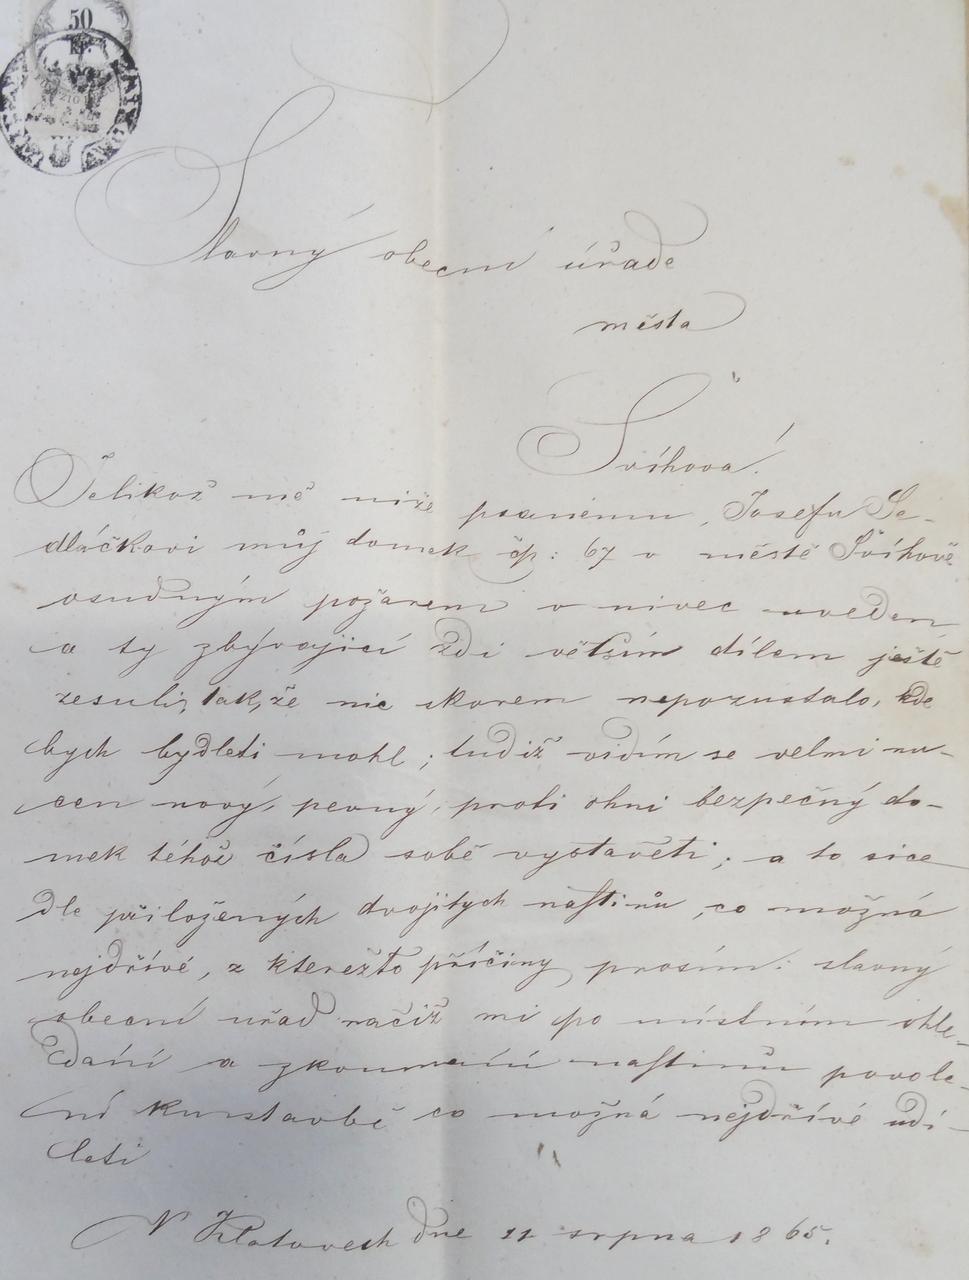 50
kr.
Slavný obecní úřade
města
Švíhova!
Jelikož mě níže psanému, Josefu Se-
dláčkovi můj domek čp: 67 v městě Švíhově
osudným požarem v nivec uveden
a ty zbývající zdi větším dílem ještě
zesuli, tak, že nic skorem nepozustalo, kde
bych bydleti mohl; tudíž vidím se velmi nu-
cen nový, pevný, proti ohni bezpečný do-
mek téhož čísla sobě vystavěti; a to sice
dle přiložených dvojitých nástinů, co možná
nejdřívé, z kterežto příčiny prosím: slavný
obecní uřad račiž mi po místním ohle-
dání a zkoumání nástinů povole-
ní ku stavbě co možná nejdřívé udí-
leti
V Klatovech dne 11 srpna 1865.